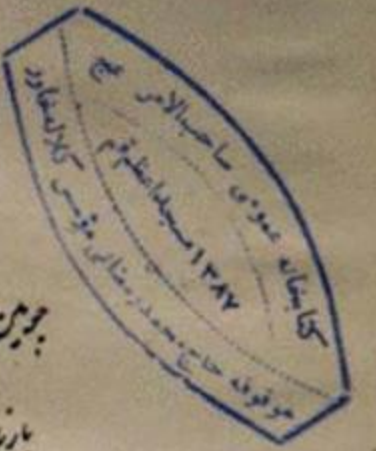 کتابخانه عمومی صاحب‌الامر عج
۱۳۸۷ مسجد اعظم قم
موقوفه حاج محمد رمضانی مؤسس کلاله خاور